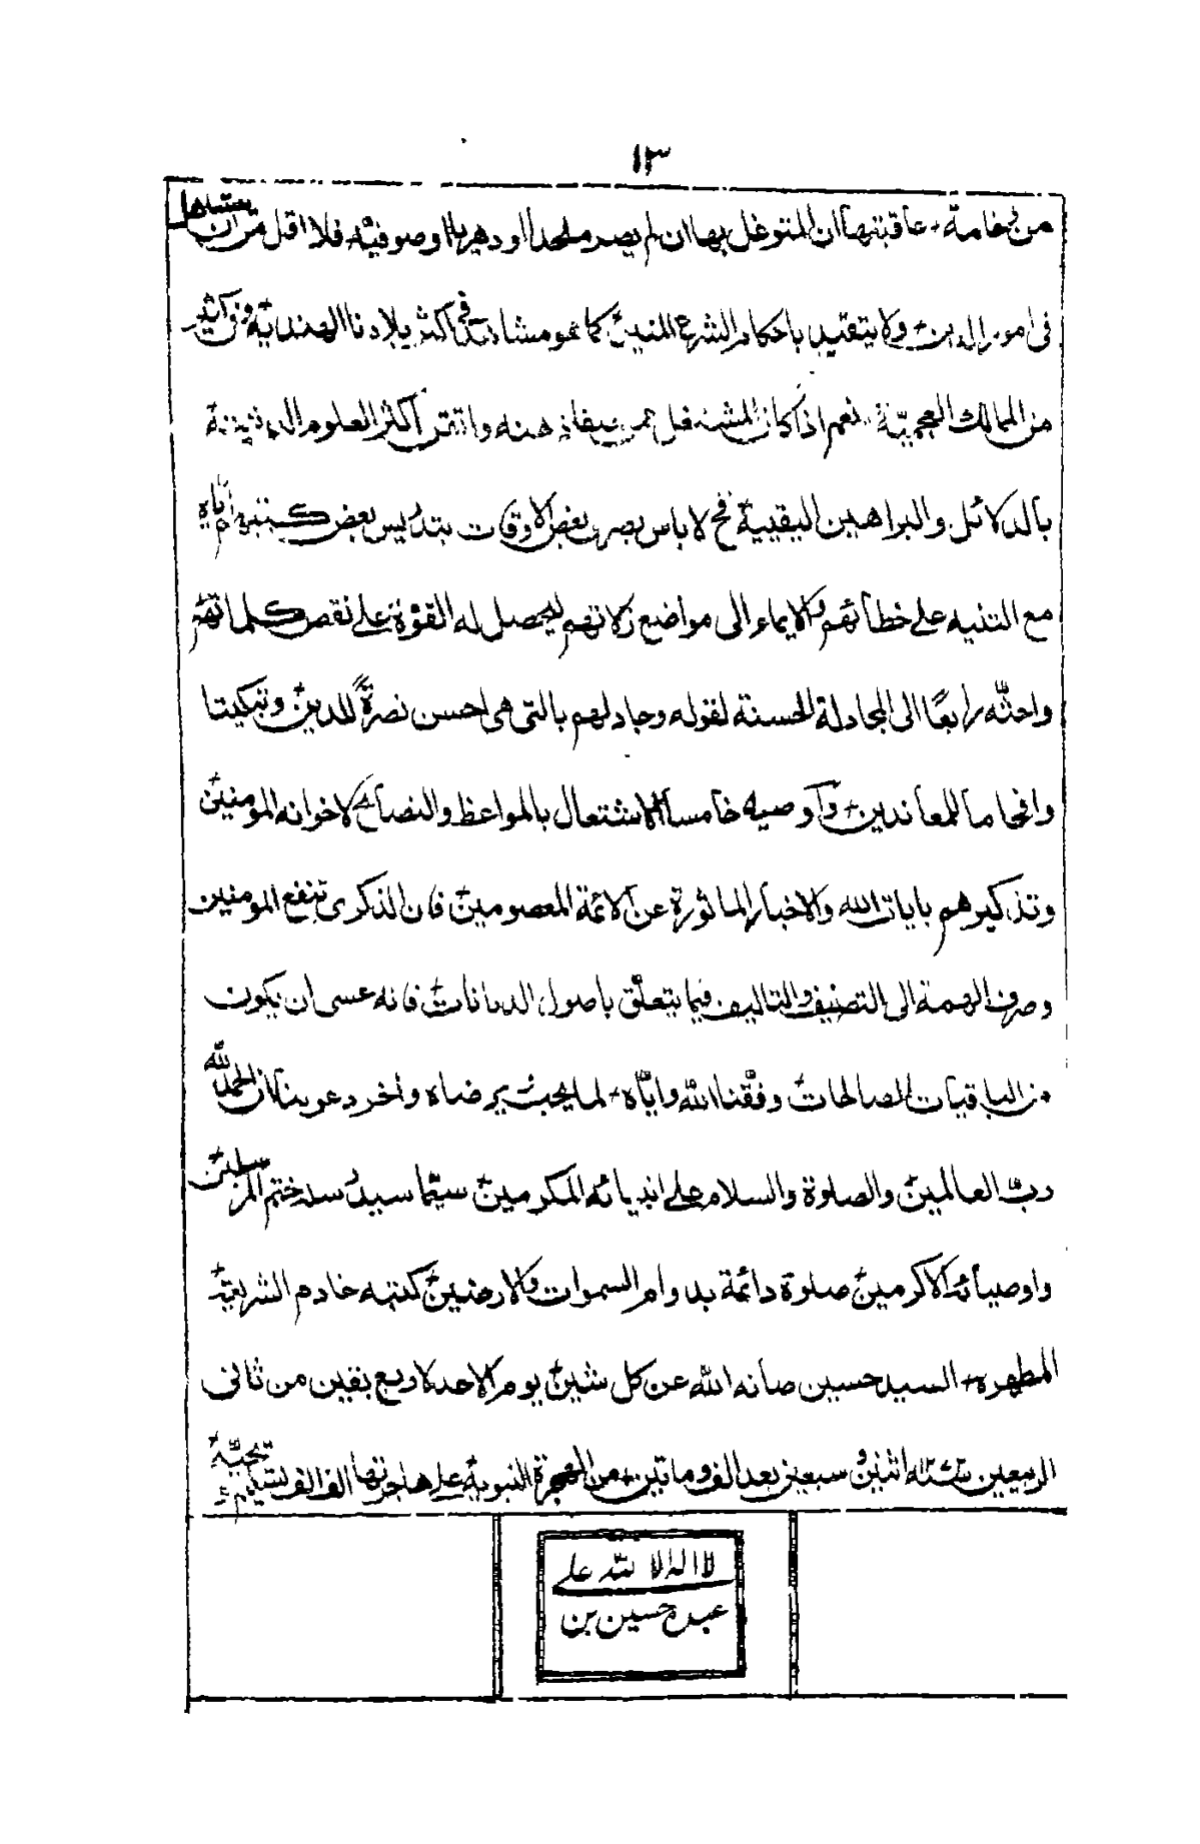 ١٣
من وخامة عاقبتها ان المتوغل بها ان لم يصر ملحدا او دهريا او صوفيه فلا اقل من ان يستساهل
فى امور الدين ولا يتقيد باحكام الشرع المتين كما هو مشاهد فى اكثر بلادنا الهندية وفى كثير
من الممالك العجمية نعم اذا كان المشتغل ممن واتقن اكثر العلوم الدينية
بالدلائل والبراهين اليقينية فح لا باس بصرف بعض الاوقات بتدريس بعض كتبهم اياه
مع التنبيه على خطائهم والايماء الى مواضع زلاتهم ليحصل له القوة على نقص كلماتهم
واحثه رابعًا الى المجادلة الحسنة لقوله وجادلهم بالتى هى احسن نصرةً للدين وتبكيتا
وافحاما للمعاندين واوصيه خامسا الاشتعال بالمواعظ والنصائح لاخوانه المومنين
وتذكيرهم بايات الله والاخبار الماثورة عن الائمة المعصومين فان الذكرى تنفع المومنين
وصرف الهمة الى التصنيف والتاليف فيما يتعلق باصول الديانات فانه عسى ان يكون
من الباقيات الصالحات وفقنا الله واياه لما يحب ويرضاه واخر دعوينا ان الحمد لله
رب العالمين والصلوة والسلام على انبيائه المكرمين سيما سيد رسله ختم المرسلين
واوصيائه الاكرمين صلوة دائمة بدوام السموات والارضين كتبه خادم الشريعة
المطهره السيد حسين صانه الله عن كل شين يوم الاحد لاربع بقين من ثانى
الربيعين سنه اثنين وسبعين بعد الف وماتين من الهجرة النبوية على هاجرها الف الف تسليم وتحية
لا اله الا الله على
عبده حسين بن